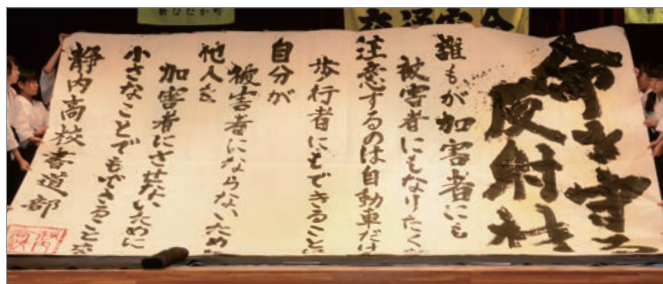 命を守る
反射材
誰もが加害者にも
被害者にもなりたく
注意するのは自動車だけ
歩行者にもできること
自分が
被害者にならないため
他人を
加害者にさせないために
小さなことでもできること
静内高校書道部